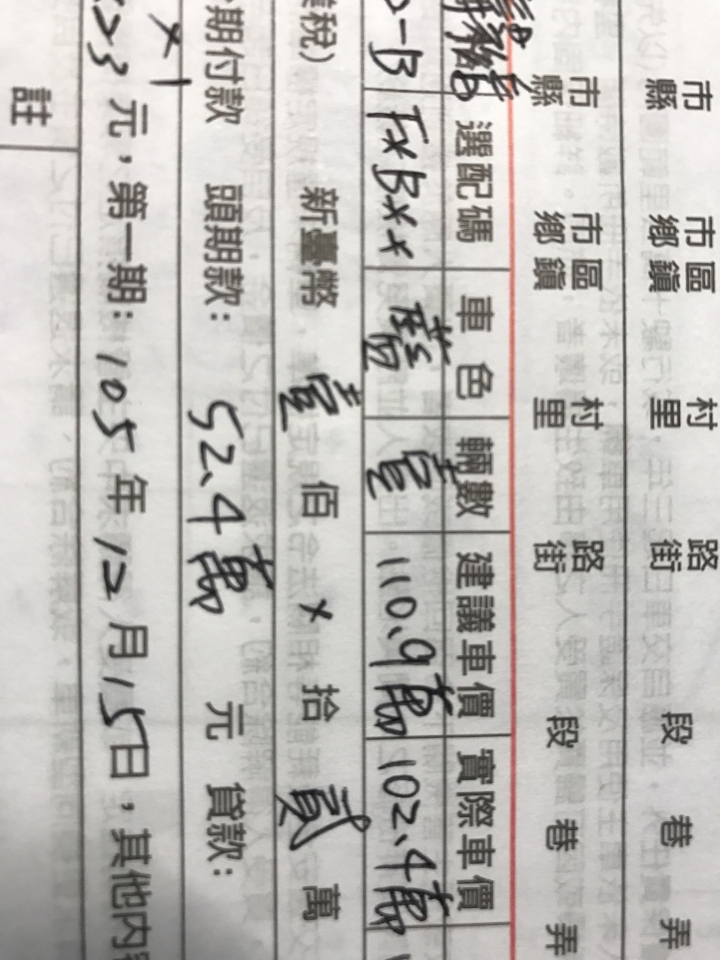 市縣 市區鄉鎮 村里 路街 段 巷 弄
市縣 市區鄉鎮 村里 路街 段 巷 弄
選配碼 車色 輛數 建議車價 實際車價
-B FxBxx 藍 壹 110.9萬 102.4萬
稅) 新臺幣 壹 佰 x 拾 貳 萬
期付款 頭期款: 52.4萬 元 貸款:
元,第一期:105年12月15日,其他內
註